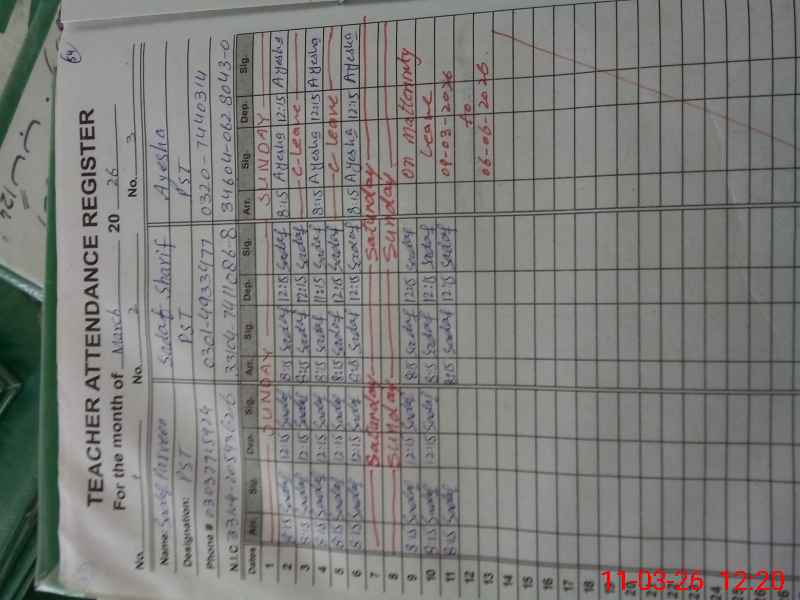 64
TEACHER ATTENDANCE REGISTER
For the month of March 2026
No. 1 No. 2 No. 3
Name: Parveen Sadaf Sharif Ayesha
Designation: PST PST PST
Phone # 0301-4933477 0320-7440314
N.I.C 33104-7411086-8 34604-0628043-0
Dates Arr. Sig. Dep. Sig. Arr. Sig. Dep. Sig. Arr. Sig. Dep. Sig.
1 SUNDAY SUNDAY SUNDAY
2 8:15 12:15 8:15 Sadaf 12:15 Sadaf 8:15 Ayesha 12:15 Ayesha
3 8:15 12:15 8:15 Sadaf 12:15 Sadaf C-Leave
4 8:15 12:15 8:15 Sadaf 12:15 Sadaf 8:15 Ayesha 12:15 Ayesha
5 8:15 12:15 8:15 Sadaf 12:15 Sadaf C Leave
6 8:15 12:15 8:15 Sadaf 12:15 Sadaf 8:15 Ayesha 12:15 Ayesha
7 Saturday Saturday
8 Sunday Sunday
9 8:15 12:15 8:15 Sadaf 12:15 Sadaf On Matternity
10 8:15 12:15 8:15 Sadaf 12:15 Sadaf Leave
11 8:15 8:15 Sadaf 12:15 Sadaf 09-03-2026
12 to
13 06-06-2026
14
15
16
17
18
19
20
21
22
23
24
25
11-03-26 12:20